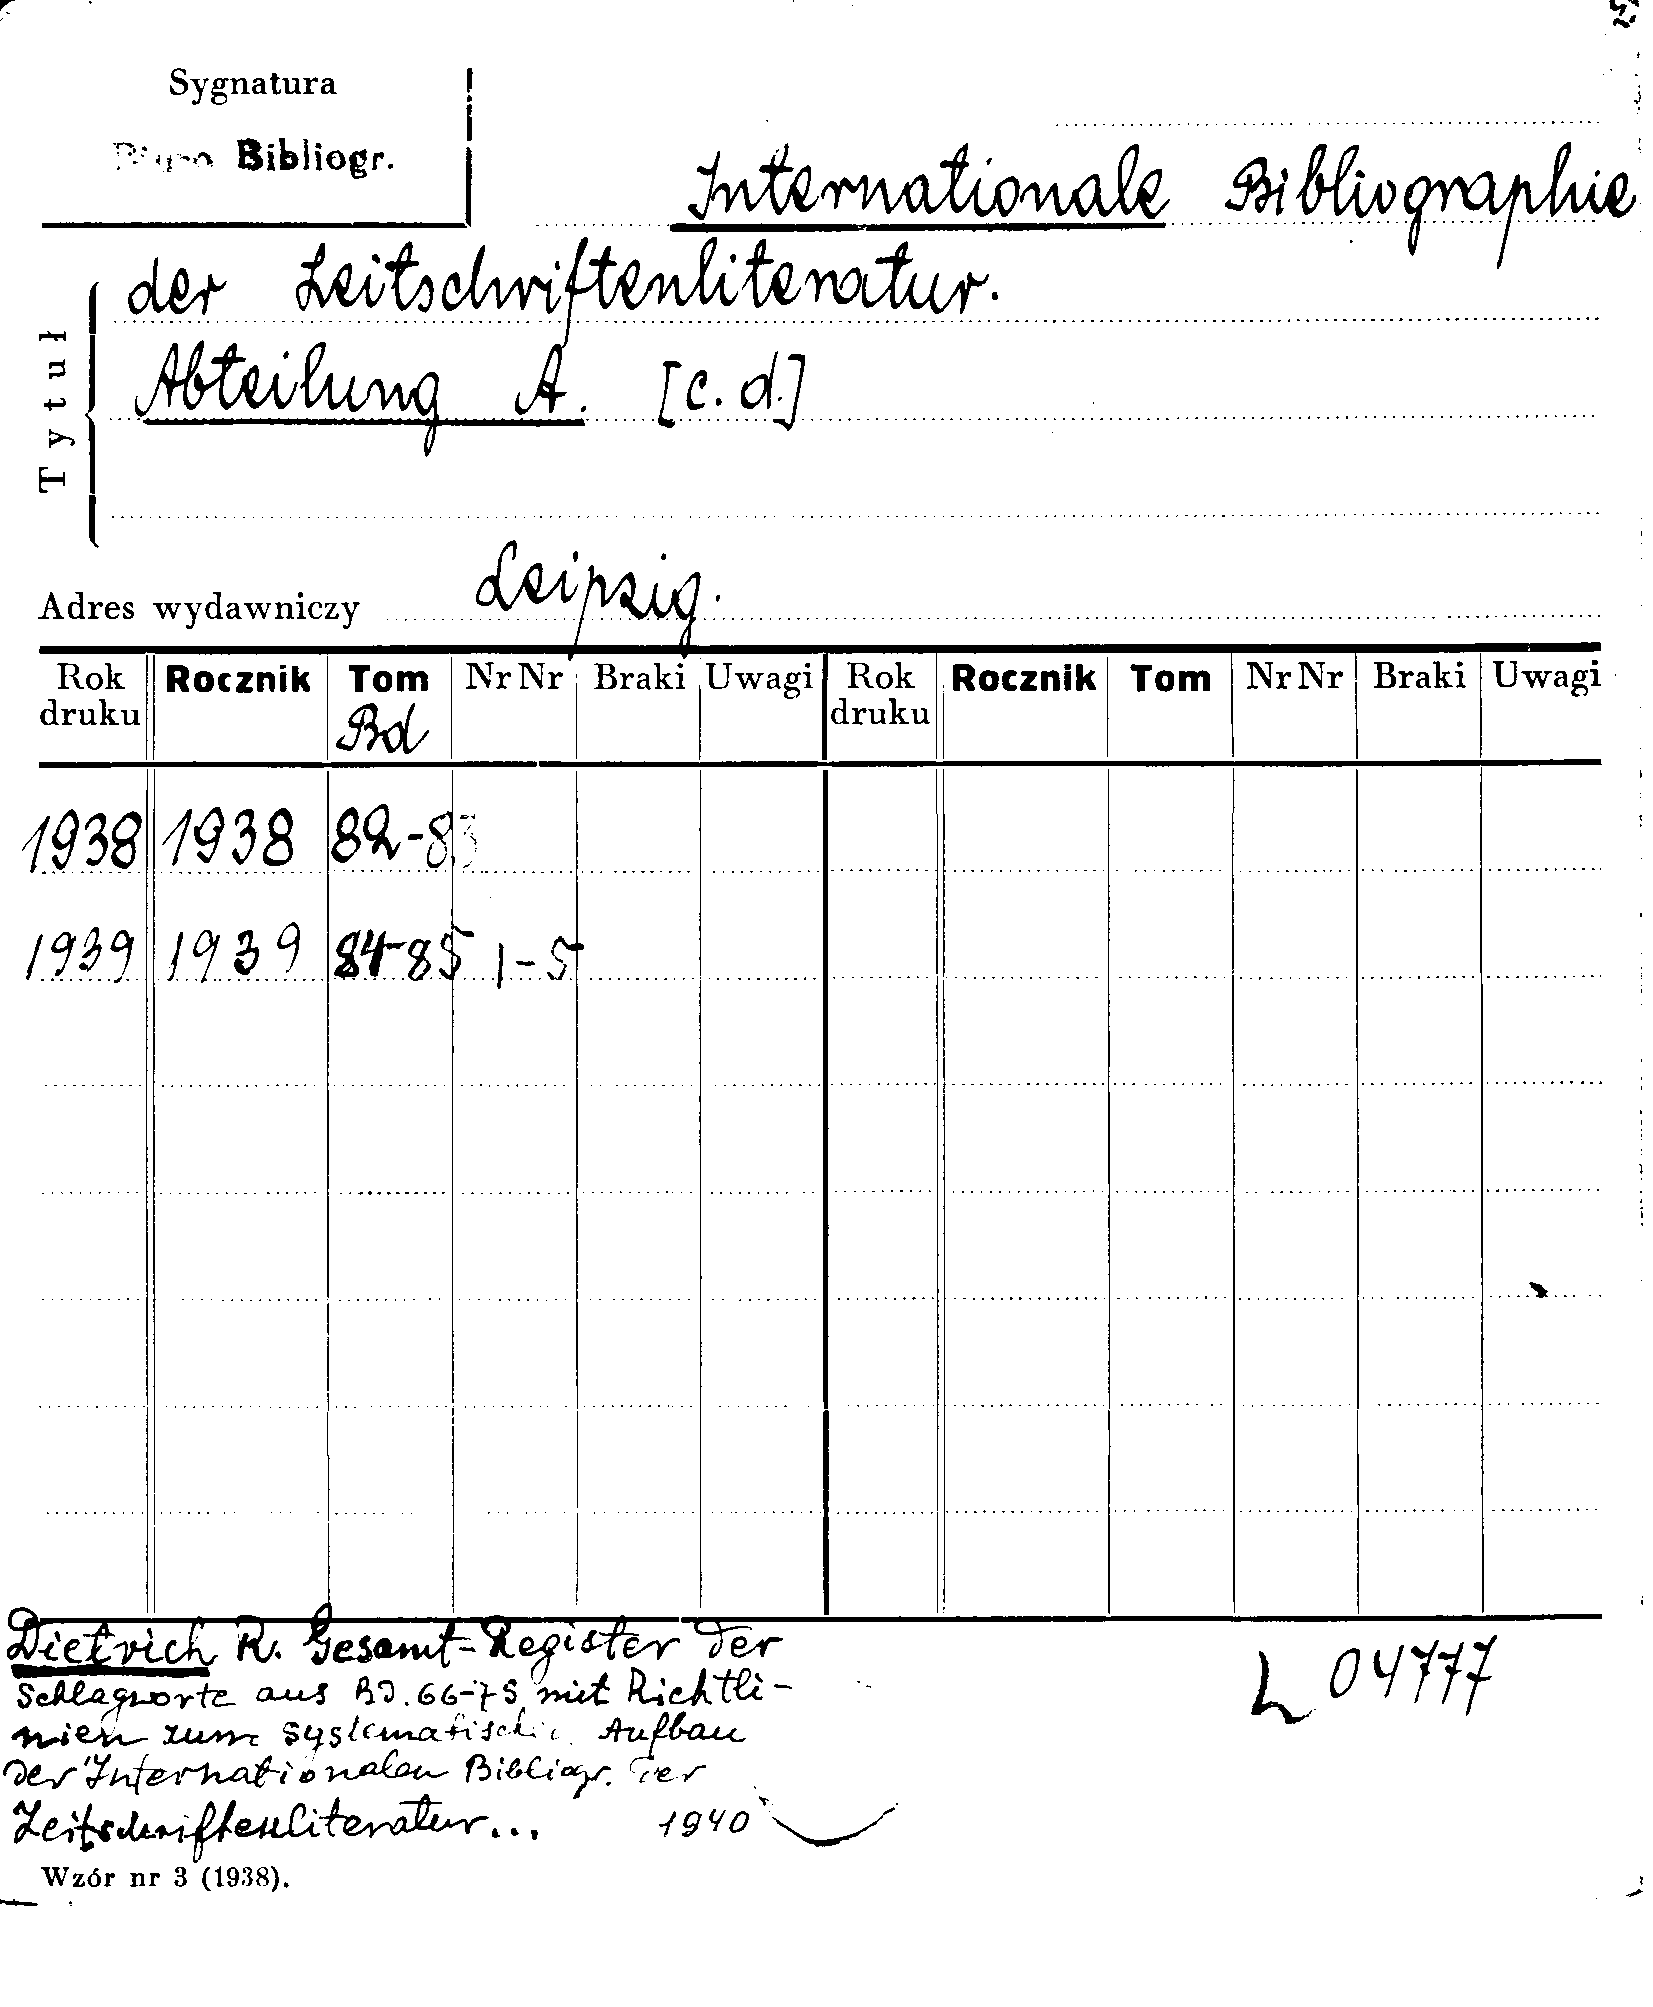 Sygnatura
Biuro Bibliogr.
Internationale Bibliographie
der Zeitschriftenliteratur.
Abteilung A. [c.d.]
Tytuł
Adres wydawniczy Leipzig.
Rok druku Rocznik Tom Nr Nr Braki Uwagi Rok druku Rocznik Tom Nr Nr Braki Uwagi
Bd
1938 1938 82-83
1939 1939 84-85 1-5
Dietrich R. Gesamt-Register der
Schlagworte aus Bd. 66-75 mit Richtli-
nien zum systematischen Aufbau
der Internationalen Bibliogr. der
Zeitschriftenliteratur... 1940
L 04777
Wzór nr 3 (1938).